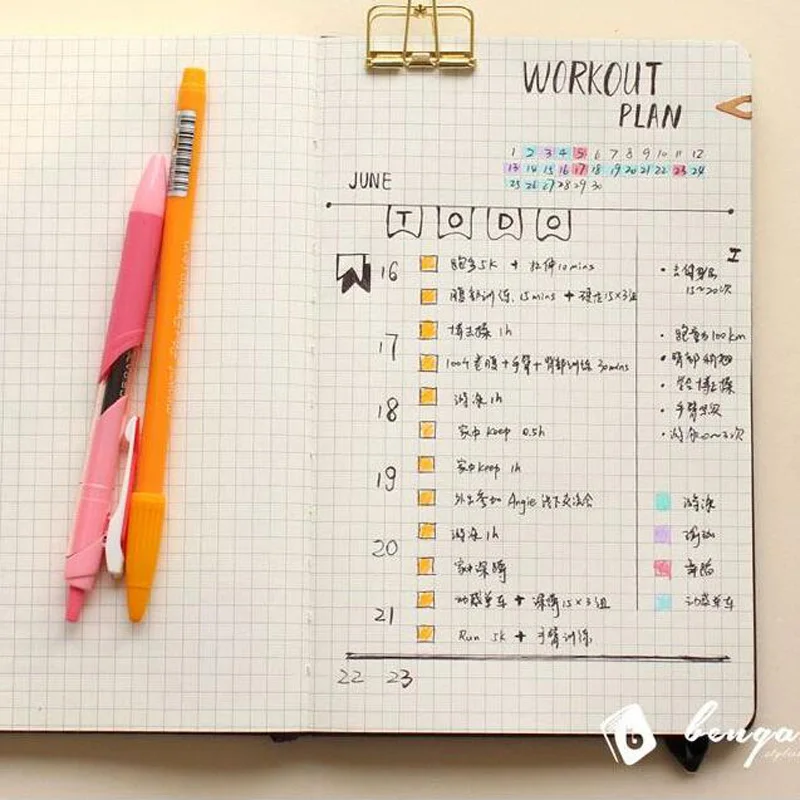 WORKOUT
PLAN
1 2 3 4 5 6 7 8 9 10 11 12
13 14 15 16 17 18 19 20 21 22 23 24
25 26 27 28 29 30
JUNE
TODO
16
跑步5K + 拉伸10mins
腹部训练 15mins + 15×3组
17
搏击操 1h
100个卷腹+手臂+背部训练 30mins
18
游泳 1h
家中keep 0.5h
19
家中keep 1h
外出参加 Angie 线下交流会
20
游泳 1h
家中深蹲
21
动感单车 + 深蹲15×3组
Run 5K + 手臂训练
22 23
15~20次
跑量100km
背部
搏击操
手臂
游泳
游泳
瑜伽
舞蹈
动感单车
benqa